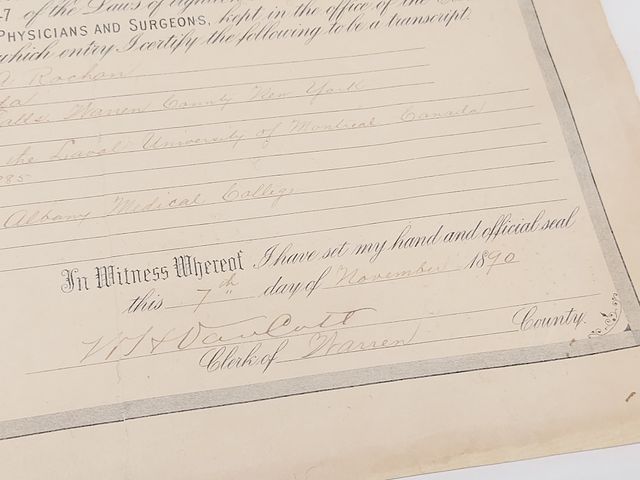 -7 of the Laws of eighteen
PHYSICIANS AND SURGEONS, kept in the office of the
which entry I certify the following to be a transcript.
Rochon
Falls Warren County New York
the Laval University of Montreal Canada
885
Albany Medical College
In Witness Whereof I have set my hand and official seal
this 7th day of November 1890
W H VanCott
Clerk of Warren County.